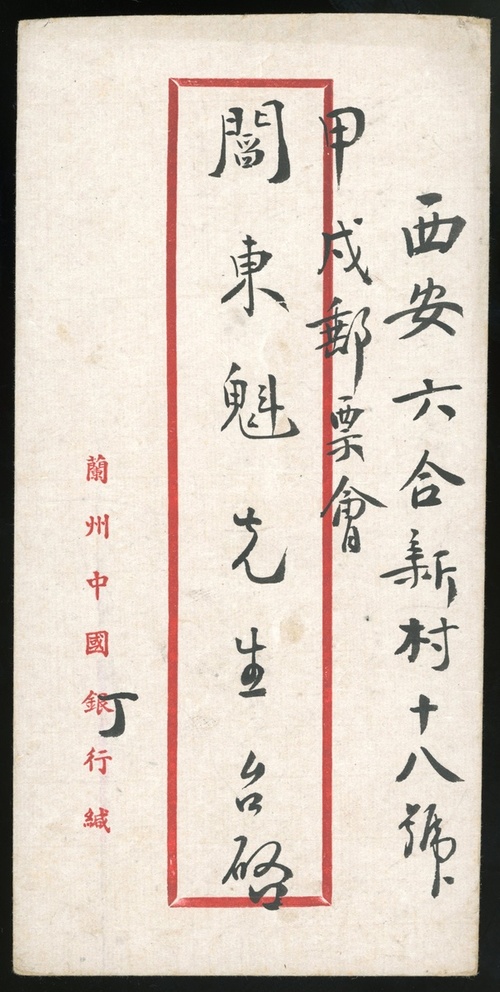 西安六合新村十八號
甲戌郵票會
閻東魁先生台啓
蘭州中國銀行緘
丁